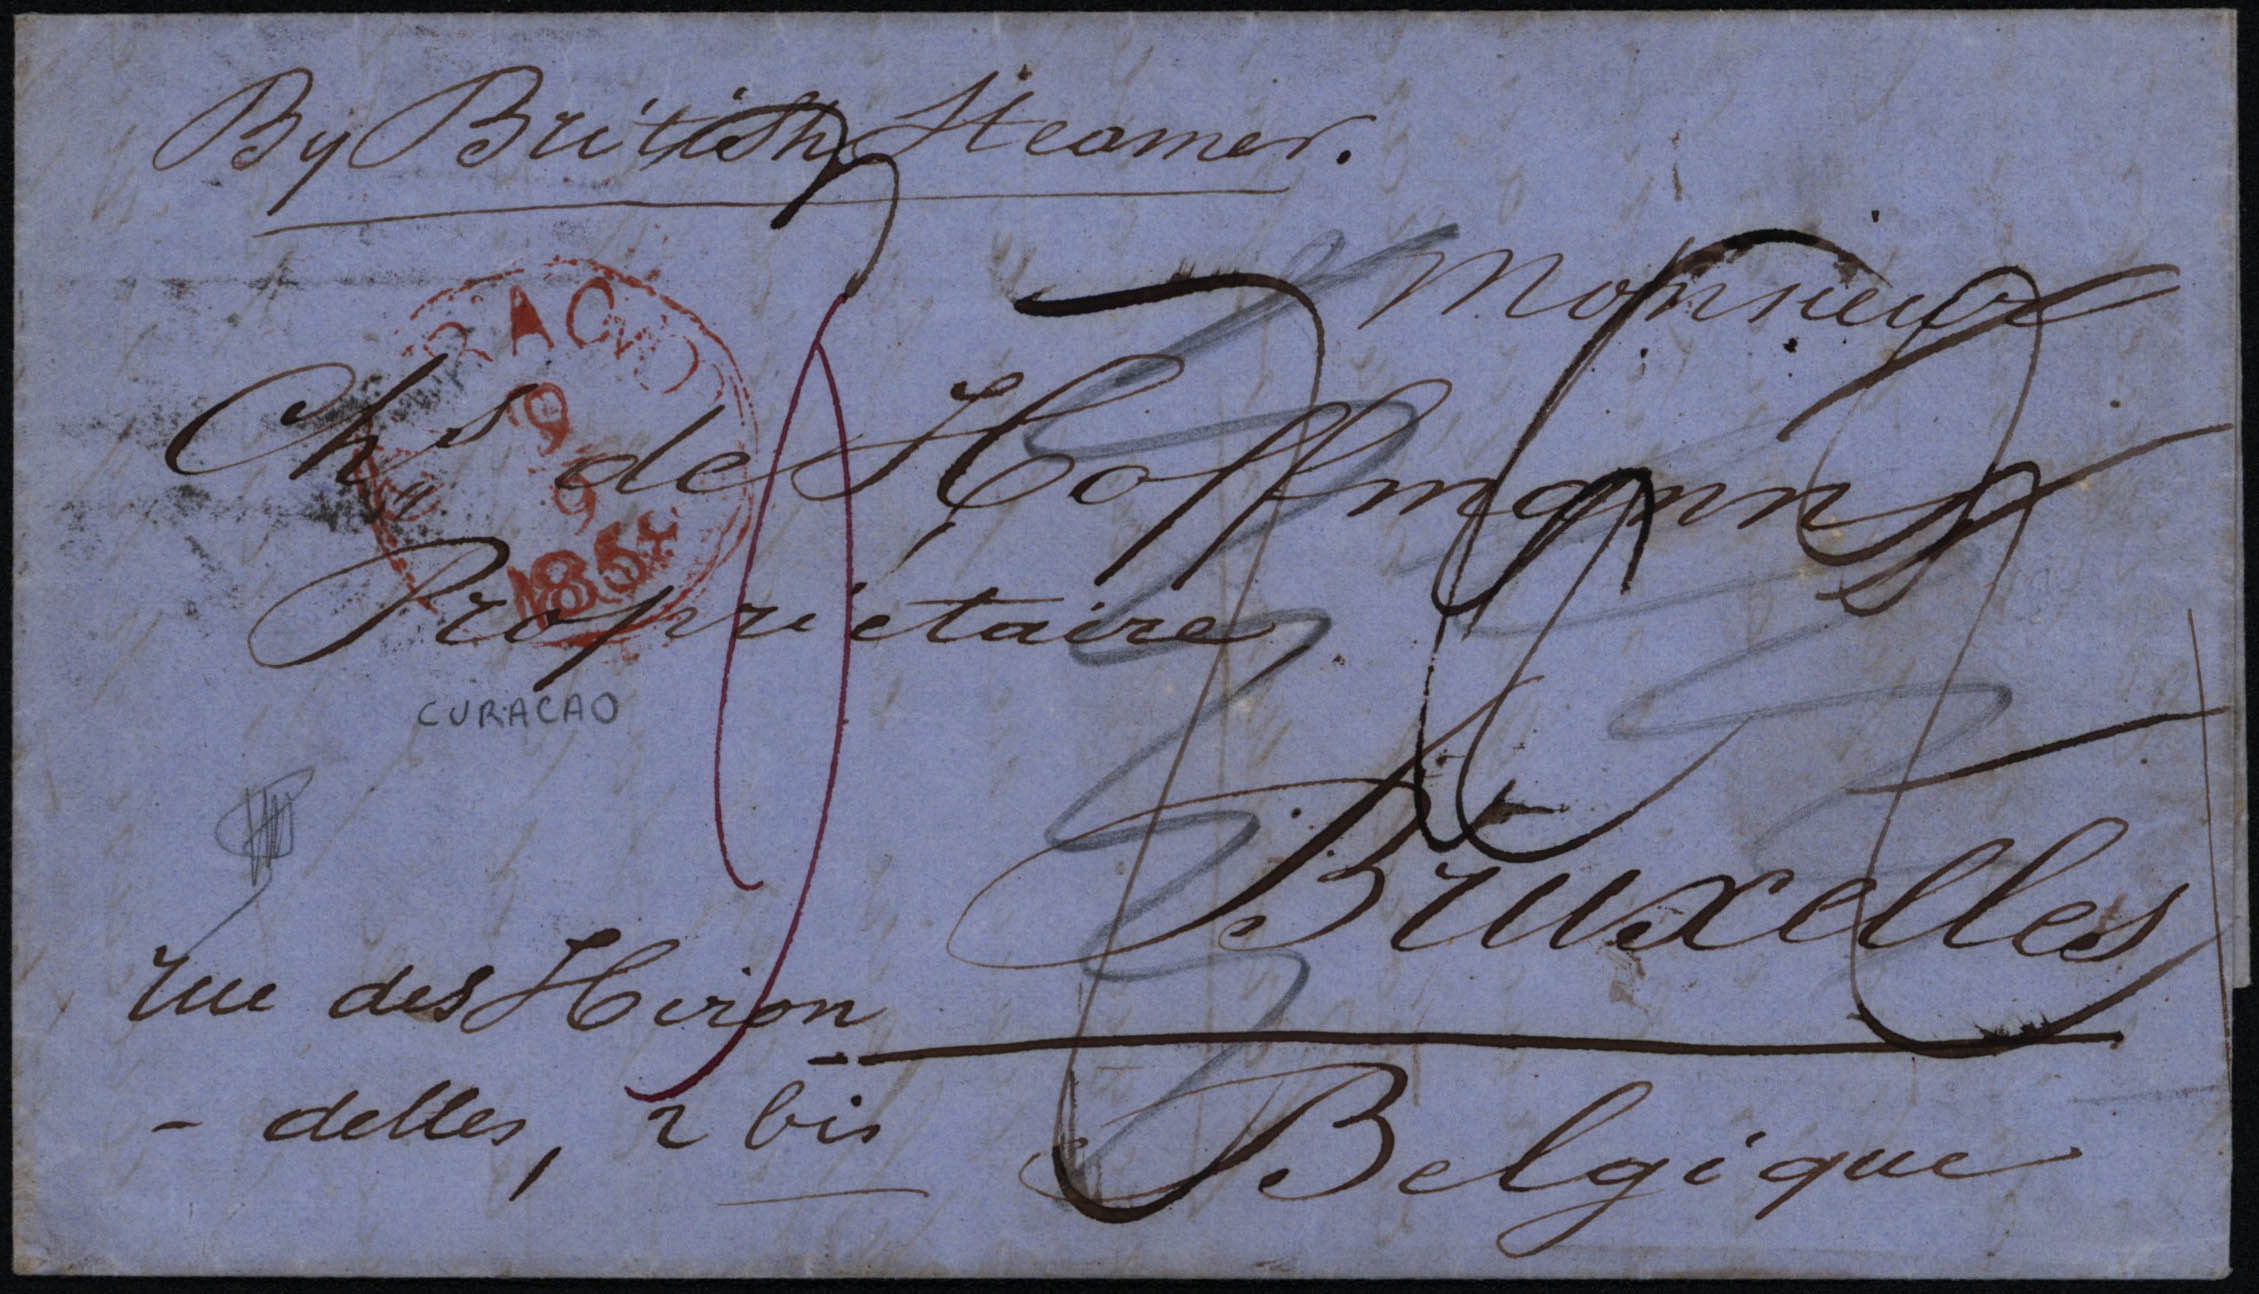 By British Steamer.
Monsieur
CURACAO
9
9
185
Chs de Hoffmanns
Propriétaire
CURACAO
Bruxelles
rue des Hiron
- delles, 2 bis
Belgique